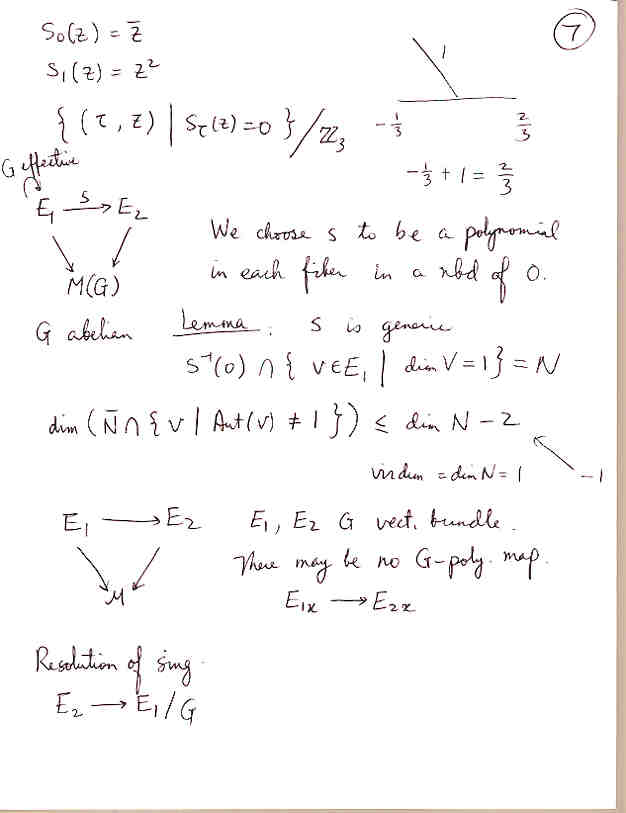 7
S₀(z) = z̄
S₁(z) = z²
{ (τ, z) | S_τ(z) = 0 } / ℤ₃
1
-1/3
2/3
-1/3 + 1 = 2/3
G effective
E₁ —S→ E₂
M(G)
We choose s to be a polynomial
in each fiber in a nbd of 0.
G abelian Lemma. S is generic
S⁻¹(0) ∩ { v ∈ E₁ | dim V = 1 } = N
dim ( N̄ ∩ { v | Aut(v) ≠ 1 } ) ≤ dim N - 2
virdim = dim N = 1
-1
E₁ ⟶ E₂ E₁, E₂ G vect. bundle.
M
There may be no G-poly. map.
E₁ₓ ⟶ E₂ₓ
Resolution of sing.
E₂ ⟶ E₁/G